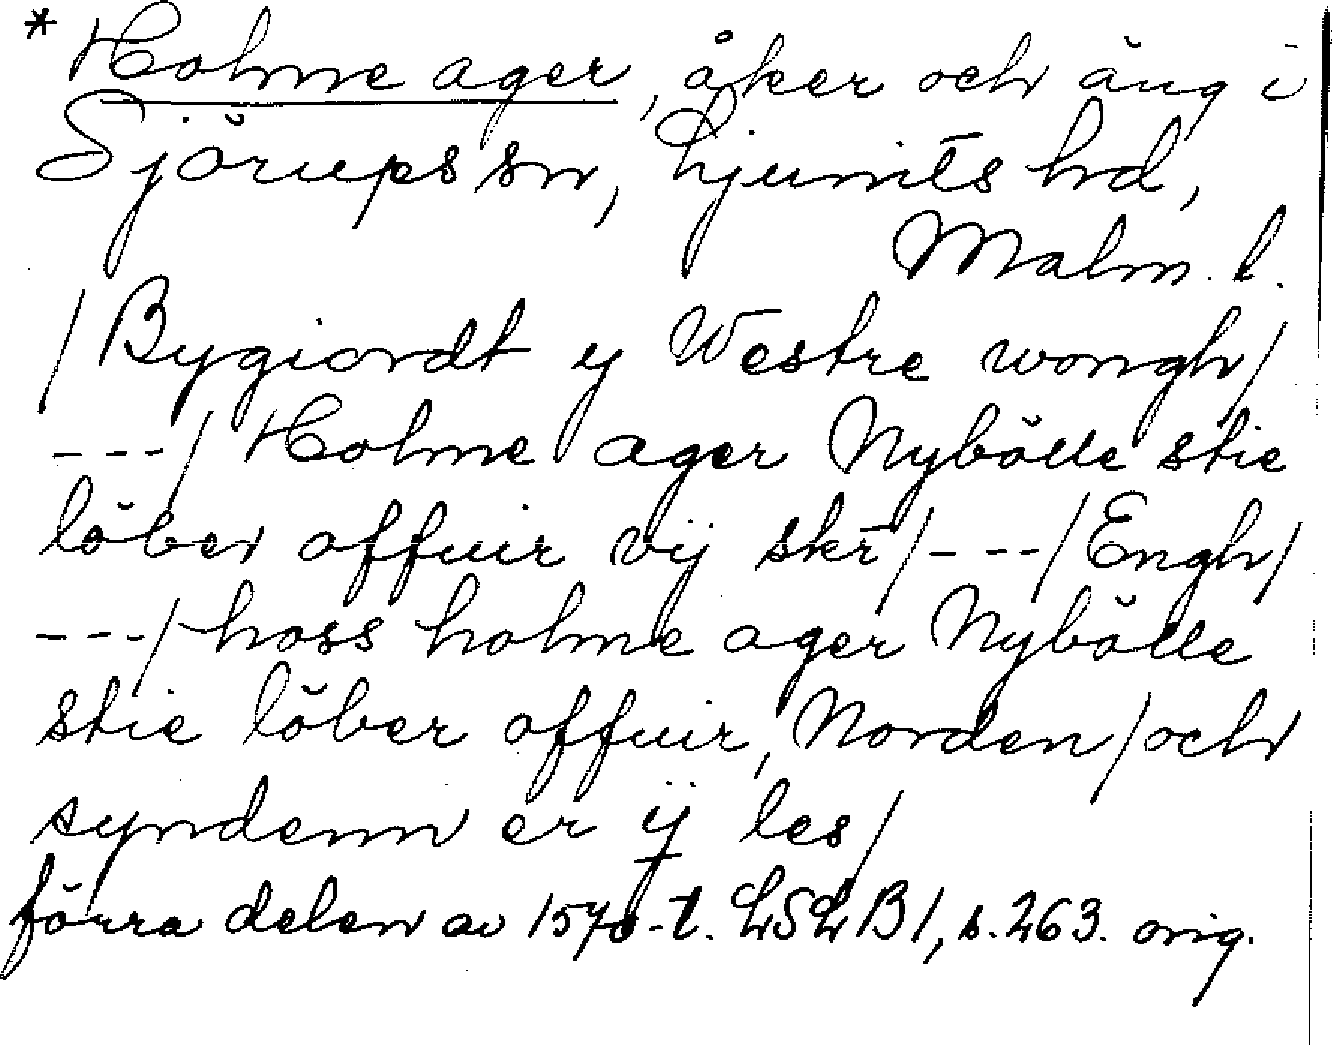 * Holme ager, åker och äng i
Sjörups sn, Ljunits hd,
Malm. l.
/Bygiordt y Westre wongh/
---/ Holme ager Nybölle stie
löber offuir vij skr̄/---/Engh/
---/hoss holme ager Nybölle
stie löber offuir, Norden/och
syndenn er ÿ les/
förra delen av 1570-t. LSLB1, s. 263. orig.